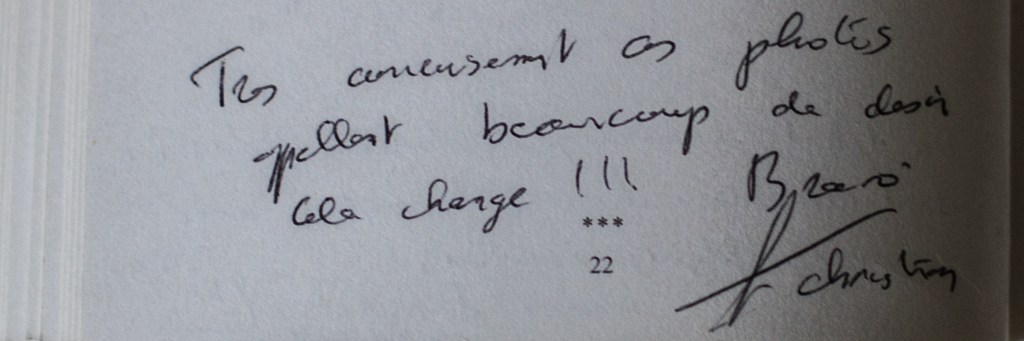 Très curieusement ces photos
appellent beaucoup de désir
Cela change !!! Bravo
***
22
Christian